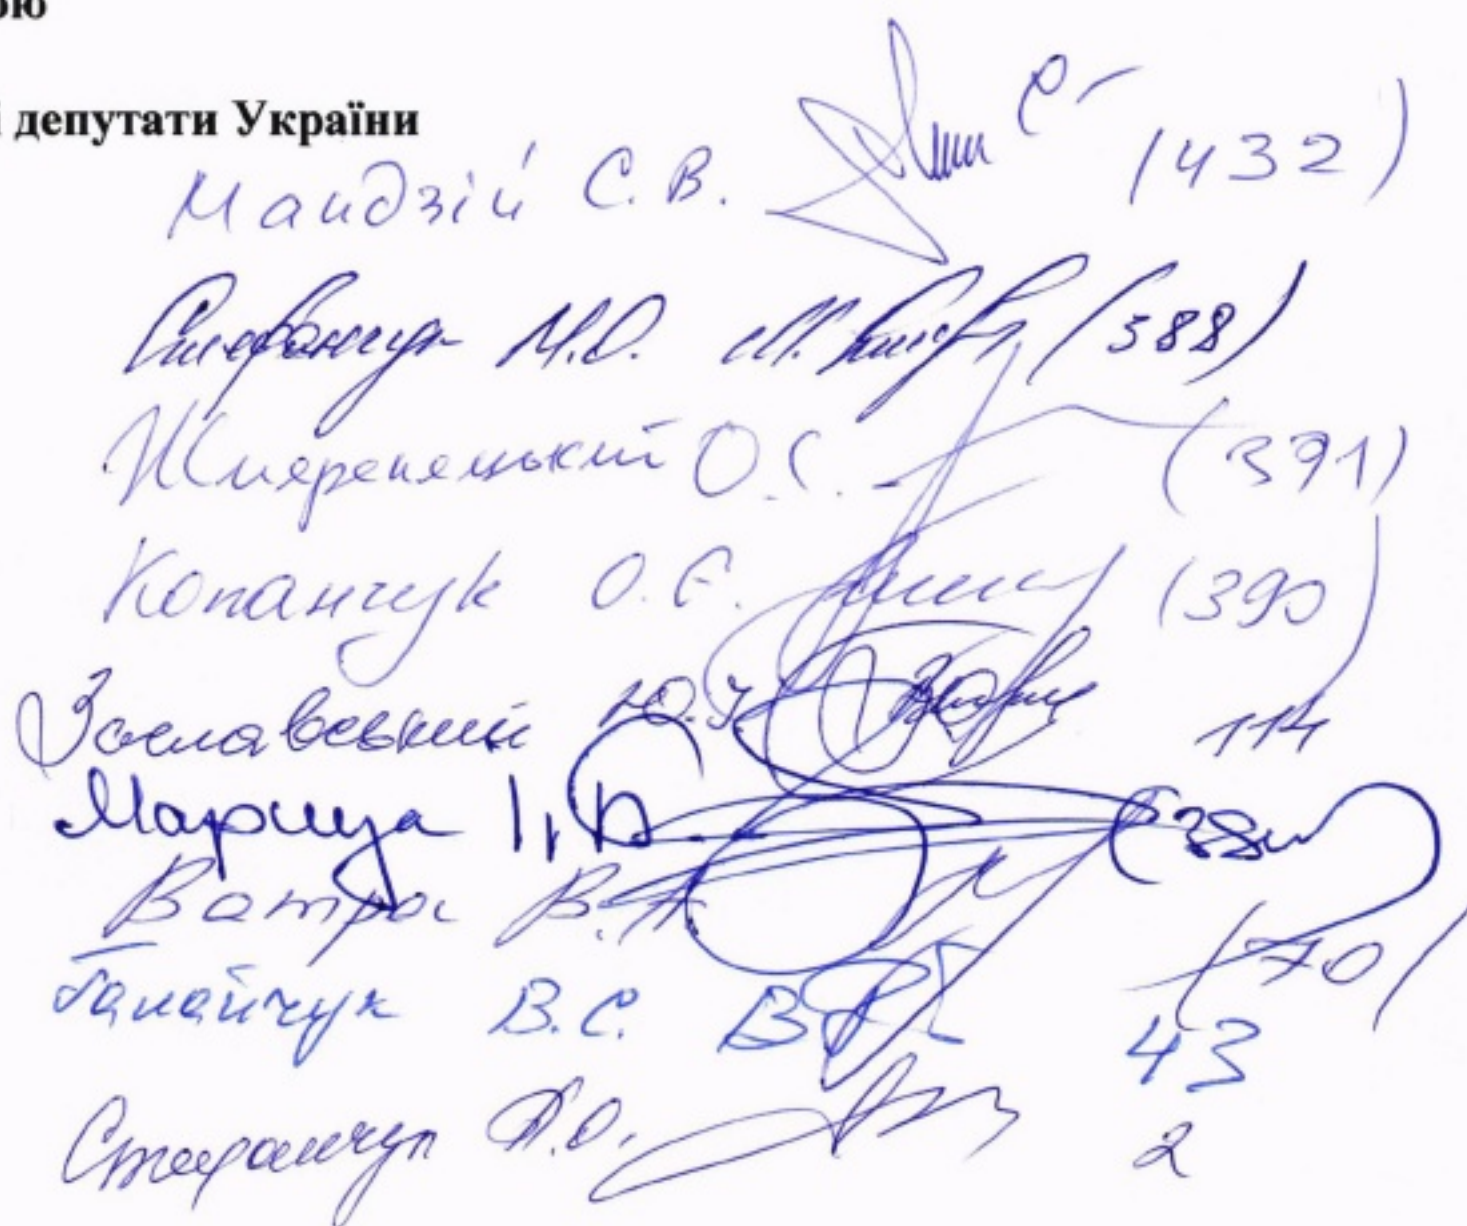 ою
і депутати України
Мандзій С. В. (432)
Стефанчук М.О. (388)
Жмеренецький О.С. (391)
Копанчук О.Є. (390)
Заславський Ю.І. 114
Марчук І.П.
Ватрас В.А. (70)
Галайчук В.С. 43
Стефанчук Р.О. 2